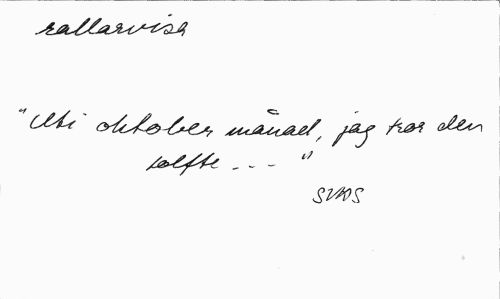 rallarvisa
"Uti oktober månad, jag tror den
tolfte ... "
SVKS